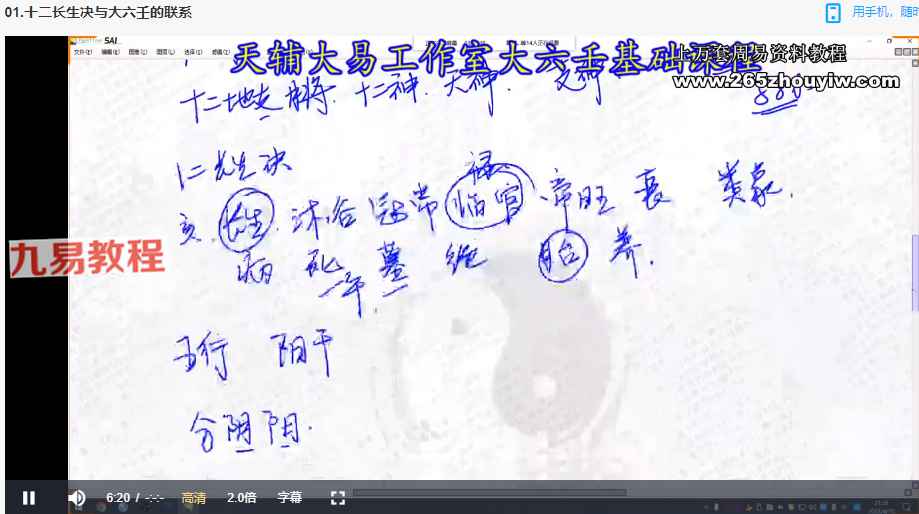 01.十二长生决与大六壬的联系
用手机，随时
天辅大易工作室大六壬基础课程
上万套周易资料教程
www.265zhouyiw.com
十二地支 月将 十二神 天神
十二长生决
禄
亥 长生 沐浴 冠带 临官 帝旺 衰 类象
九易教程
病 死 墓 绝 胎 养
五行 阳干
分阴阳
6:20 / -:-:- 高清 2.0倍 字幕